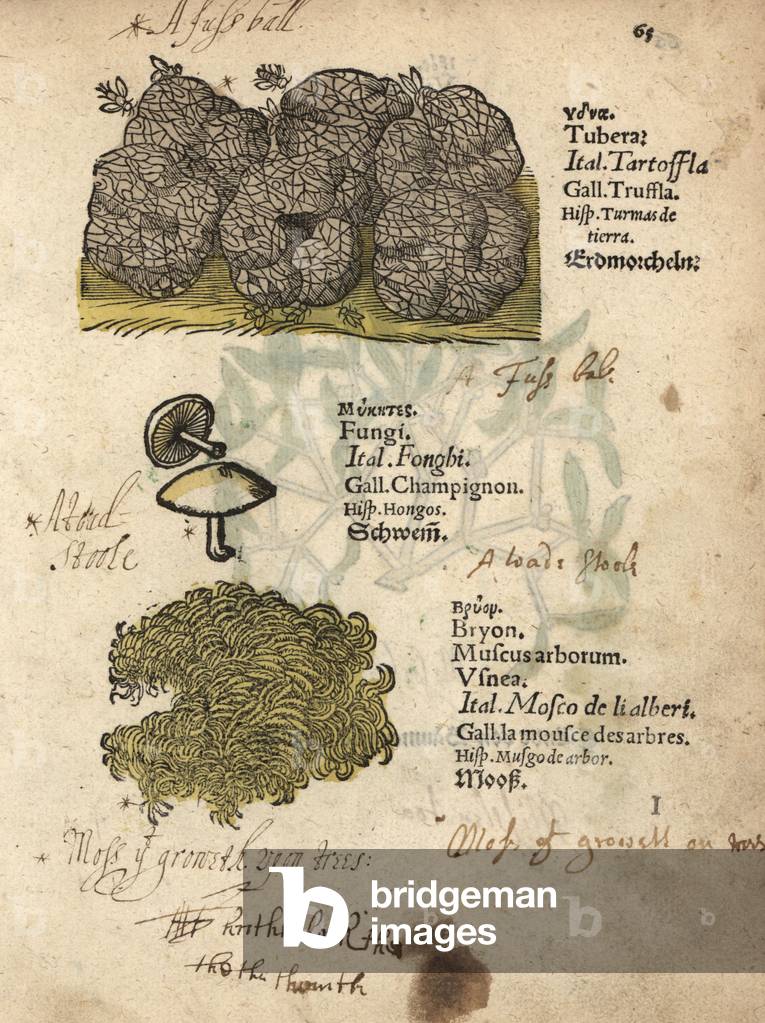 A fuss ball.
65
ὕδνα.
Tubera:
Ital. Tartoffla
Gall. Truffla.
Hisp. Turmas de
tierra.
Erdmorcheln:
A Fuss bal.
Μύκητες.
Fungi.
Ital. Fonghi.
Gall. Champignon.
Hisp. Hongos.
Schwem̃.
A toad
stoole
A toade stoole
Βρύον.
Bryon.
Muscus arborum.
Vsnea.
Ital. Mosco de li alberi.
Gall. la mousce des arbres.
Hisp. Musgo de arbor.
Mooß.
I
Moss yt groweth vpon trees:
Moss yt groweth on trees
b bridgeman
images